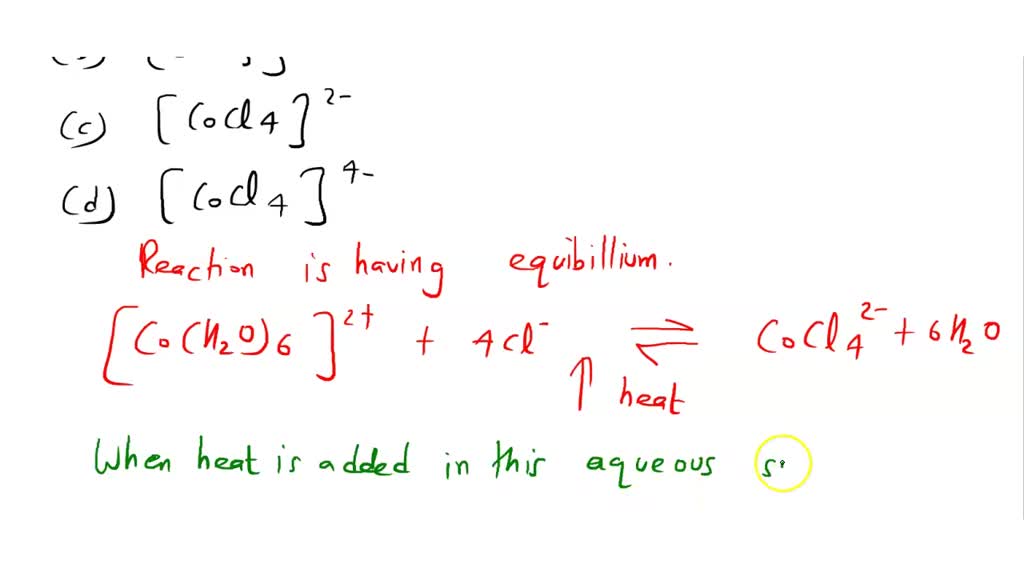 (c) [CoCl4]2-
(d) [CoCl4]4-
Reaction is having equibillium.
[Co(H2O)6]2+ + 4Cl- ⇌ CoCl4 2- + 6H2O
↑ heat
When heat is added in this aqueous s